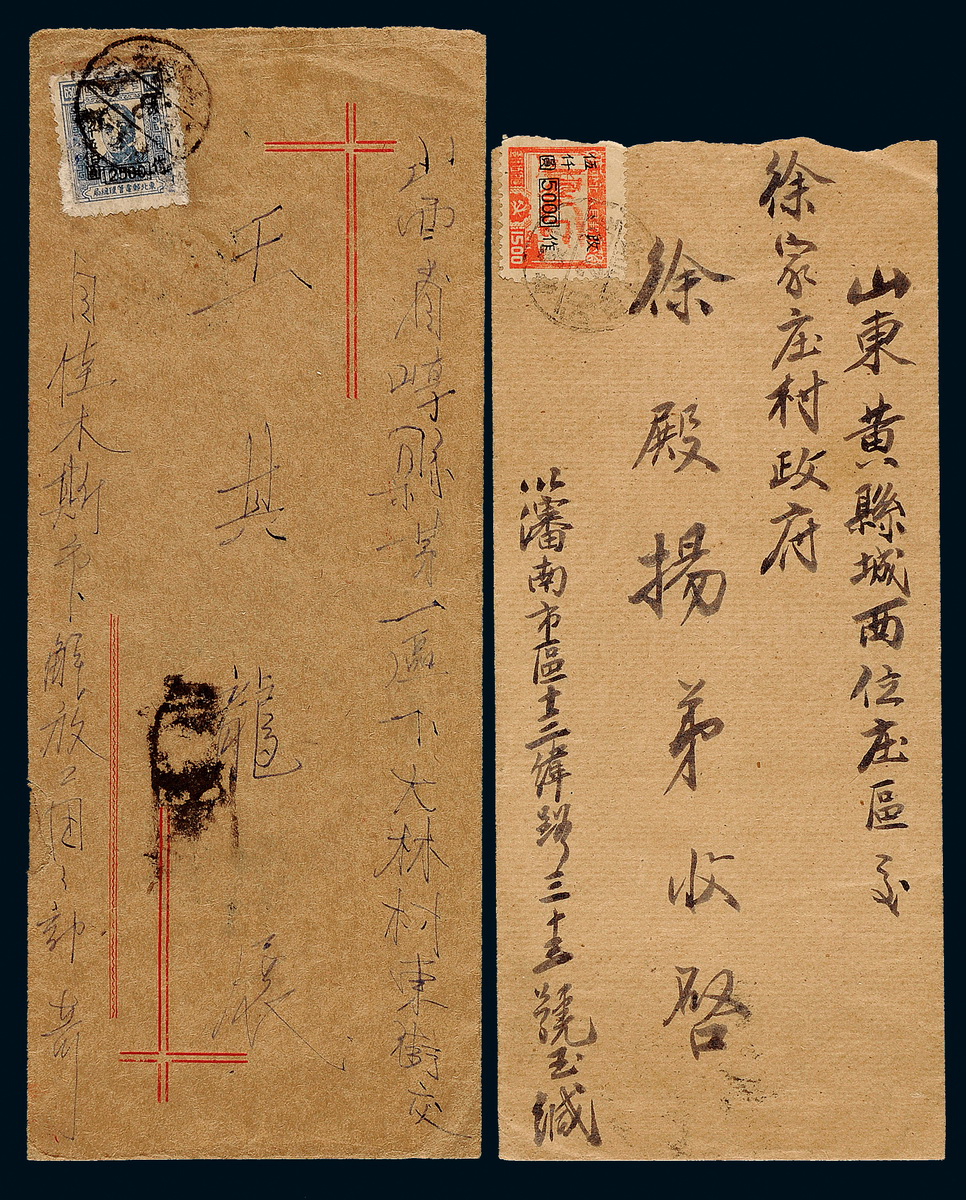 山西省崞縣第一區下大林村東街交
王其龍
自佳木斯市解放
2500
東北郵電管理總局
山東黃縣城西位庄區交
徐家庄村政府
徐殿揚弟收啓
瀋南市區十二緯路三十五號玉緘
伍仟圓
5000
改作
1500